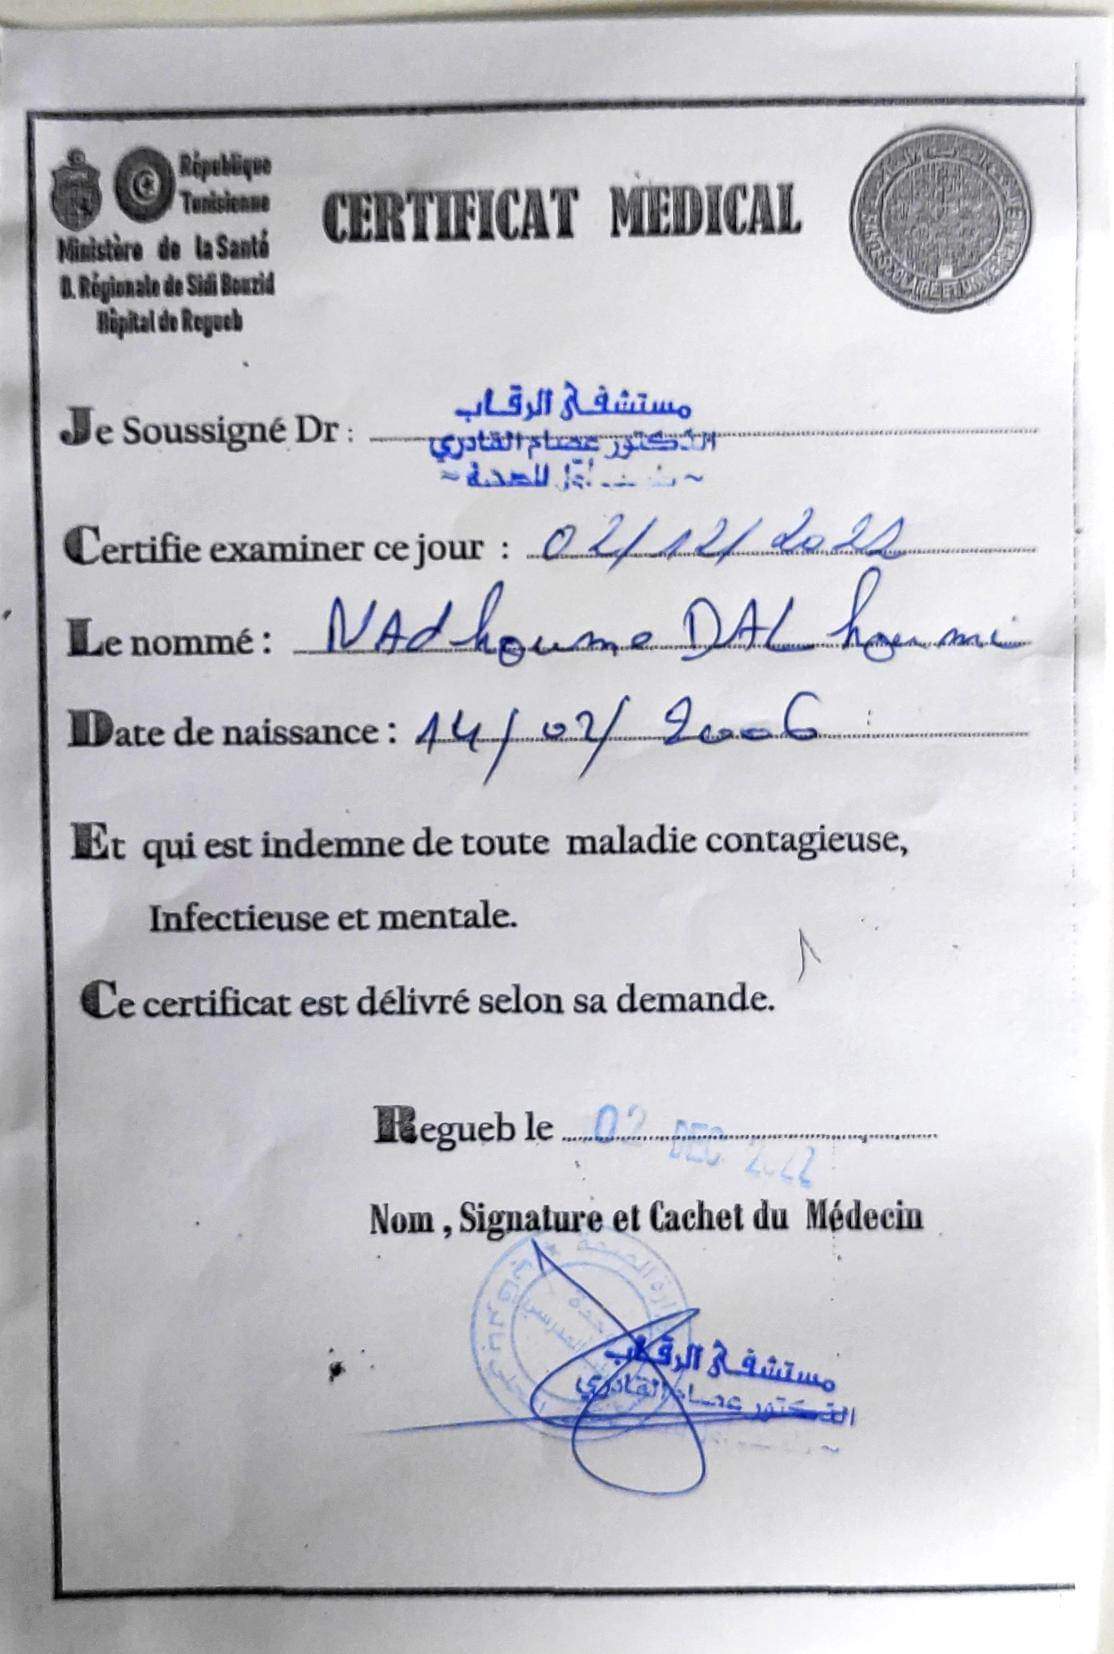 République
Tunisienne
Ministère de la Santé
D. Régionale de Sidi Bouzid
Hôpital de Regueb
CERTIFICAT MEDICAL
مستشفى الرقاب
Je Soussigné Dr :
الدكتور عصام القادري
للصحة
Certifie examiner ce jour : 02/12/2022
Le nommé : NAdhoume DAL houmi
Date de naissance : 14/02/2006
Et qui est indemne de toute maladie contagieuse,
Infectieuse et mentale.
Ce certificat est délivré selon sa demande.
Regueb le 02 DEC 2022
Nom , Signature et Cachet du Médecin
مستشفى الرقاب
الدكتور عصام القادري